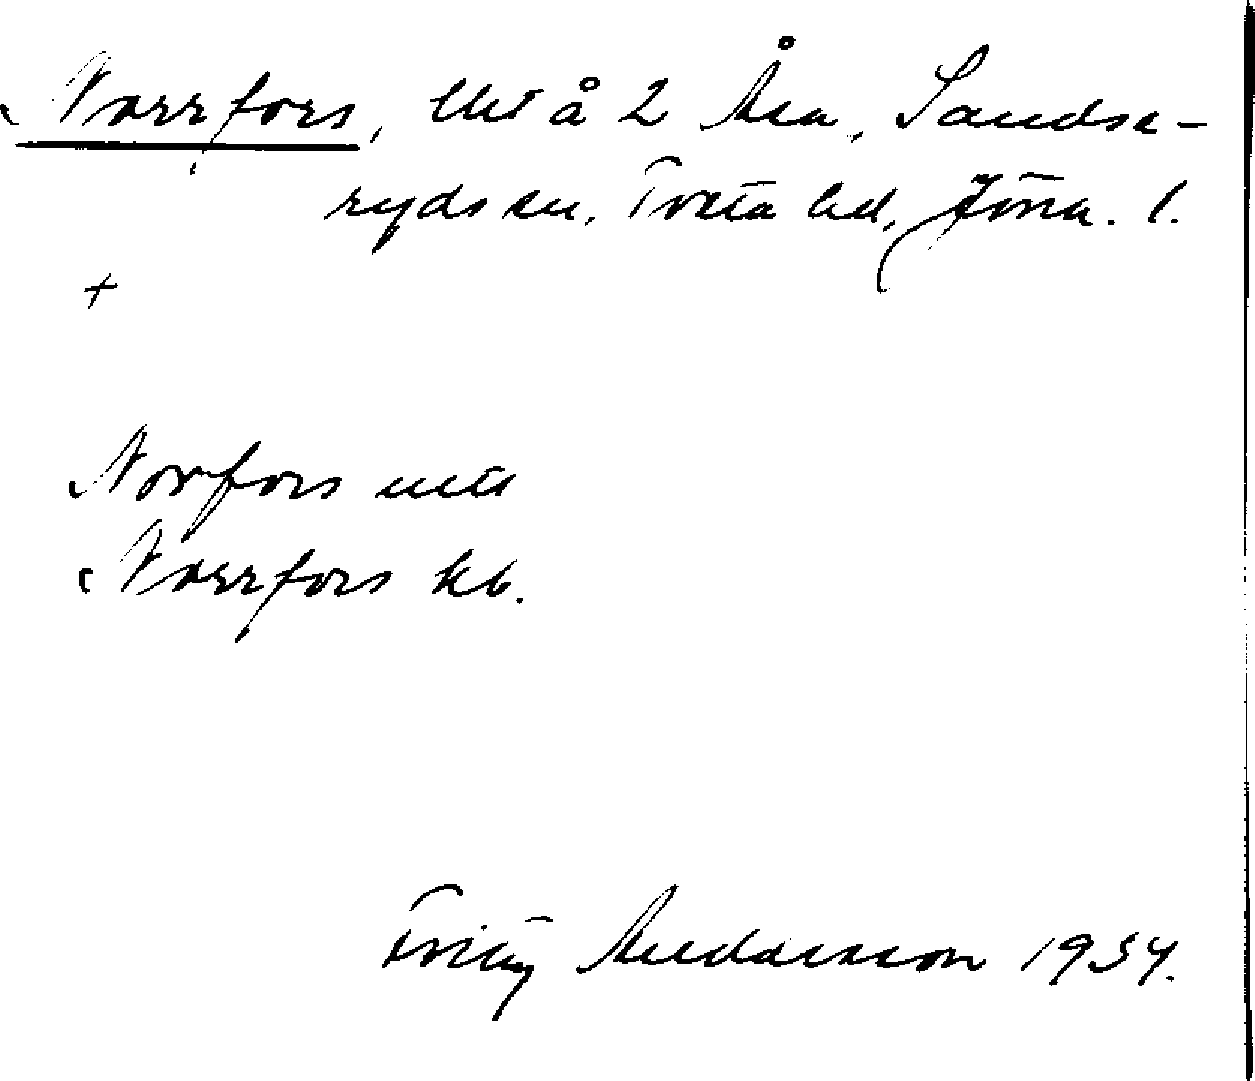 Norrfors, Uts å 2 Åsa, Sandse-
ryds sn, Tveta hd, Jönk. l.
+
Norfors uttal
Norrfors kb.
Fritz Andersson 1934.